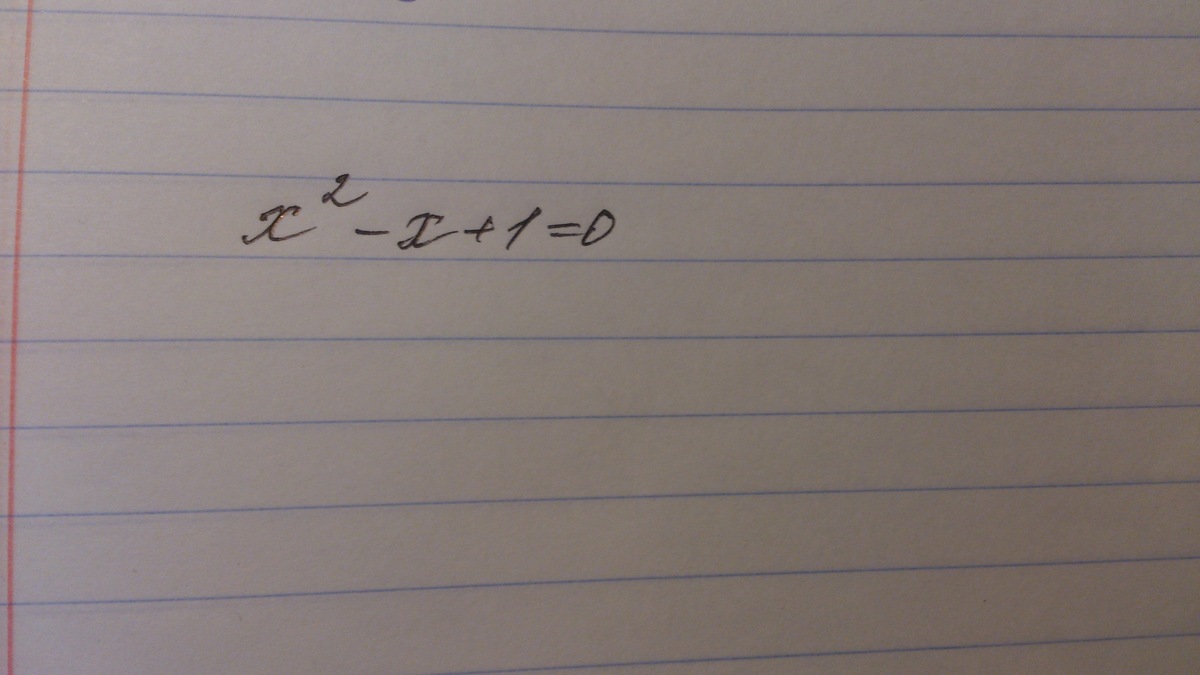 x² - x + 1 = 0